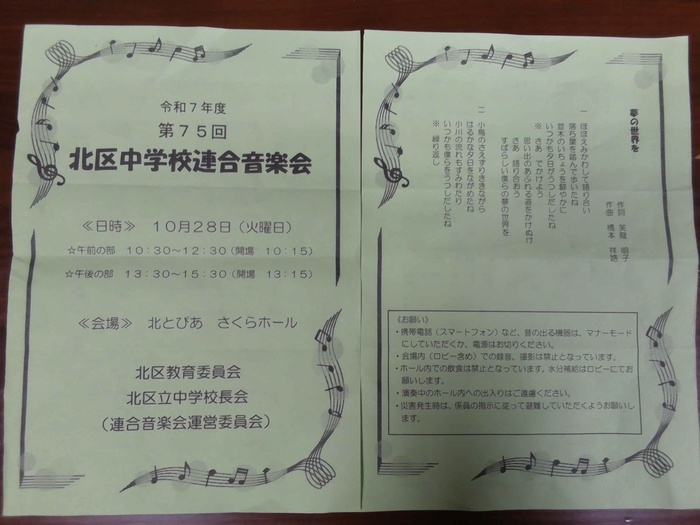 令和７年度
第７５回
北区中学校連合音楽会
≪日時≫ １０月２８日（火曜日）
☆午前の部 １０：３０～１２：３０（開場 １０：１５）
☆午後の部 １３：３０～１５：３０（開場 １３：１５）
≪会場≫ 北とぴあ さくらホール
北区教育委員会
北区立中学校長会
（連合音楽会運営委員会）
夢の世界を
作詞 芙龍 明子
作曲 橋本 祥路
一 ほほえみかわして語り合い
落ち葉を踏んで歩いたね
並木のいちょうを鮮やかに
いつかも夕日がうつしだしたね
※ さあ でかけよう
思い出のあふれる道をかけぬけ
さあ 語り合おう
すばらしい僕らの夢の世界を
二 小鳥のさえずりききながら
はるかな夕日をながめたね
小川の流れもすみわたり
いつかも僕らをうつしだしたね
※ 繰り返し
《お願い》
・携帯電話（スマートフォン）など、音の出る機器は、マナーモード
にしていただくか、電源はお切りください。
・会場内（ロビー含め）での録音、撮影は禁止となっています。
・ホール内での飲食は禁止となっています。水分補給はロビーにてお
願いします。
・演奏中のホール内への出入りはご遠慮ください。
・災害発生時は、係員の指示に従って避難していただくようお願いし
ます。